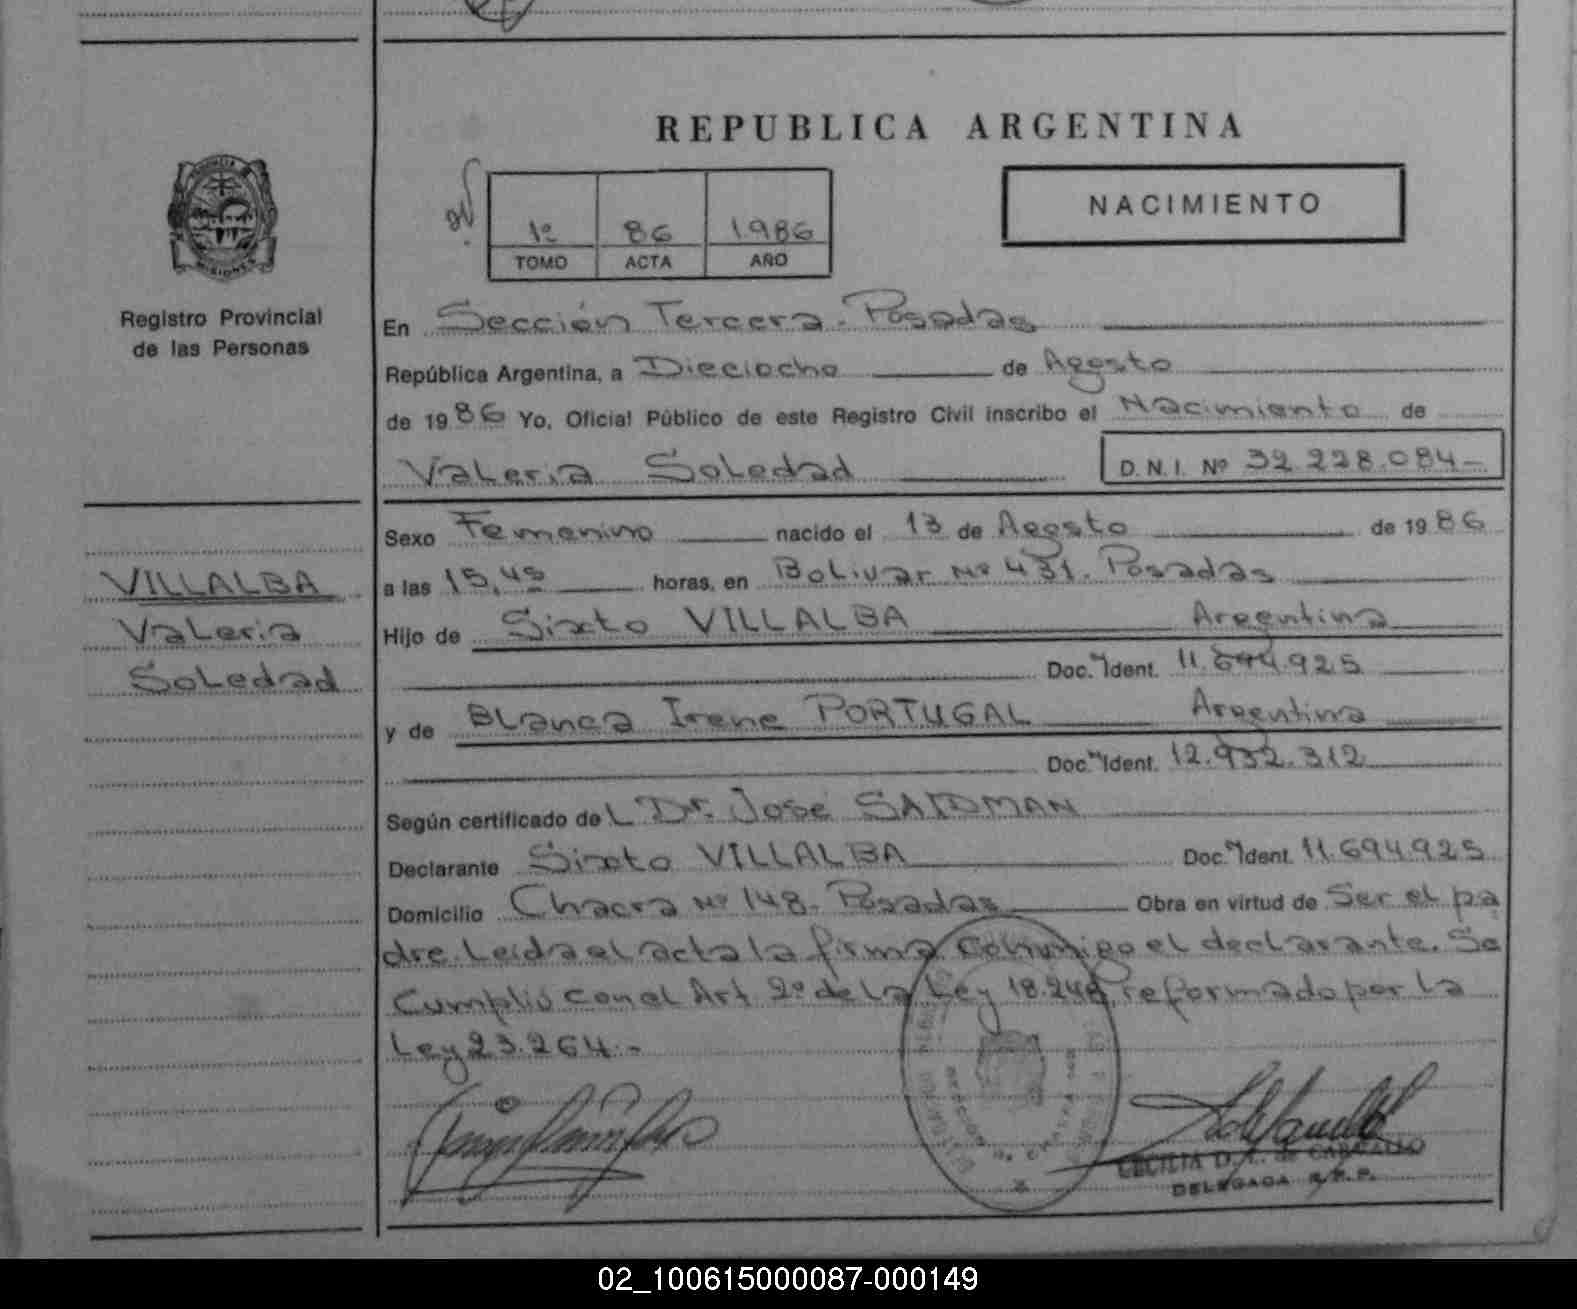 REPUBLICA ARGENTINA
NACIMIENTO
1º 86 1.986
TOMO ACTA AÑO
MISIONES
Registro Provincial
de las Personas
En Sección Tercera. Posadas
República Argentina, a Dieciocho de Agosto
de 1986 Yo, Oficial Público de este Registro Civil inscribo el Nacimiento de
Valeria Soledad D.N.I. Nº 32.228.084
Sexo Femenino nacido el 13 de Agosto de 1986
VILLALBA
Valeria
Soledad
a las 15,45 horas, en Bolivar Nº 431. Posadas
Hijo de Sixto VILLALBA Argentina
Doc. Ident. 11.694.925
y de Blanca Irene PORTUGAL Argentina
Doc. Ident. 12.932.312
Según certificado del Dr. José SAIDMAN
Declarante Sixto VILLALBA Doc. Ident. 11.694.925
Domicilio Chacra Nº 148. Posadas Obra en virtud de Ser el pa
dre. Leida el acta la firma conmigo el declarante. Se
Cumplió con el Art 2º de La Ley 18.248, reformado por La
Ley 23.264.-
CECILIA D. de
DELEGADA R.P.P.
02_100615000087-000149